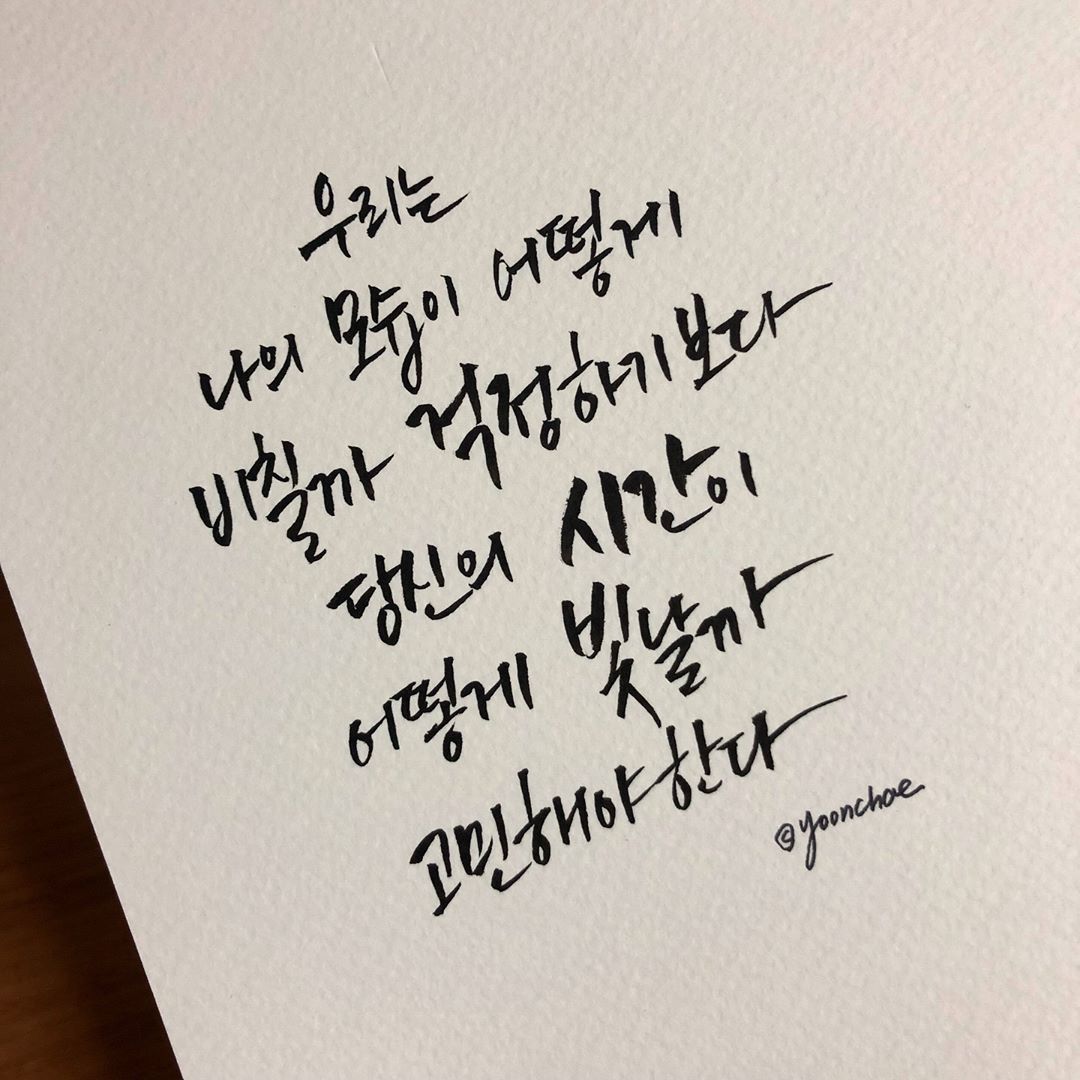 우리는
나의 모습이 어떻게
비칠까 걱정하기보다
당신의 시간이
어떻게 빛날까
고민해야 한다
©yoonchae